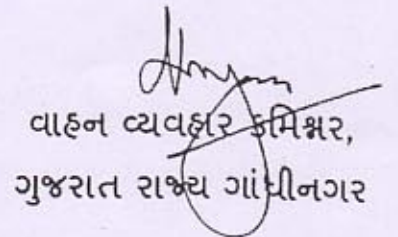 વાહન વ્યવહાર કમિશ્નર,
ગુજરાત રાજ્ય ગાંધીનગર